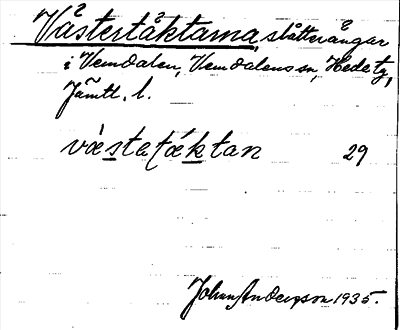 Västertåktarna, slåtterängar
i Vemdalen, Vemdalens sn, Hede tg,
Jämtl. l.
væstatæktan 29
Johan Andersson 1935.